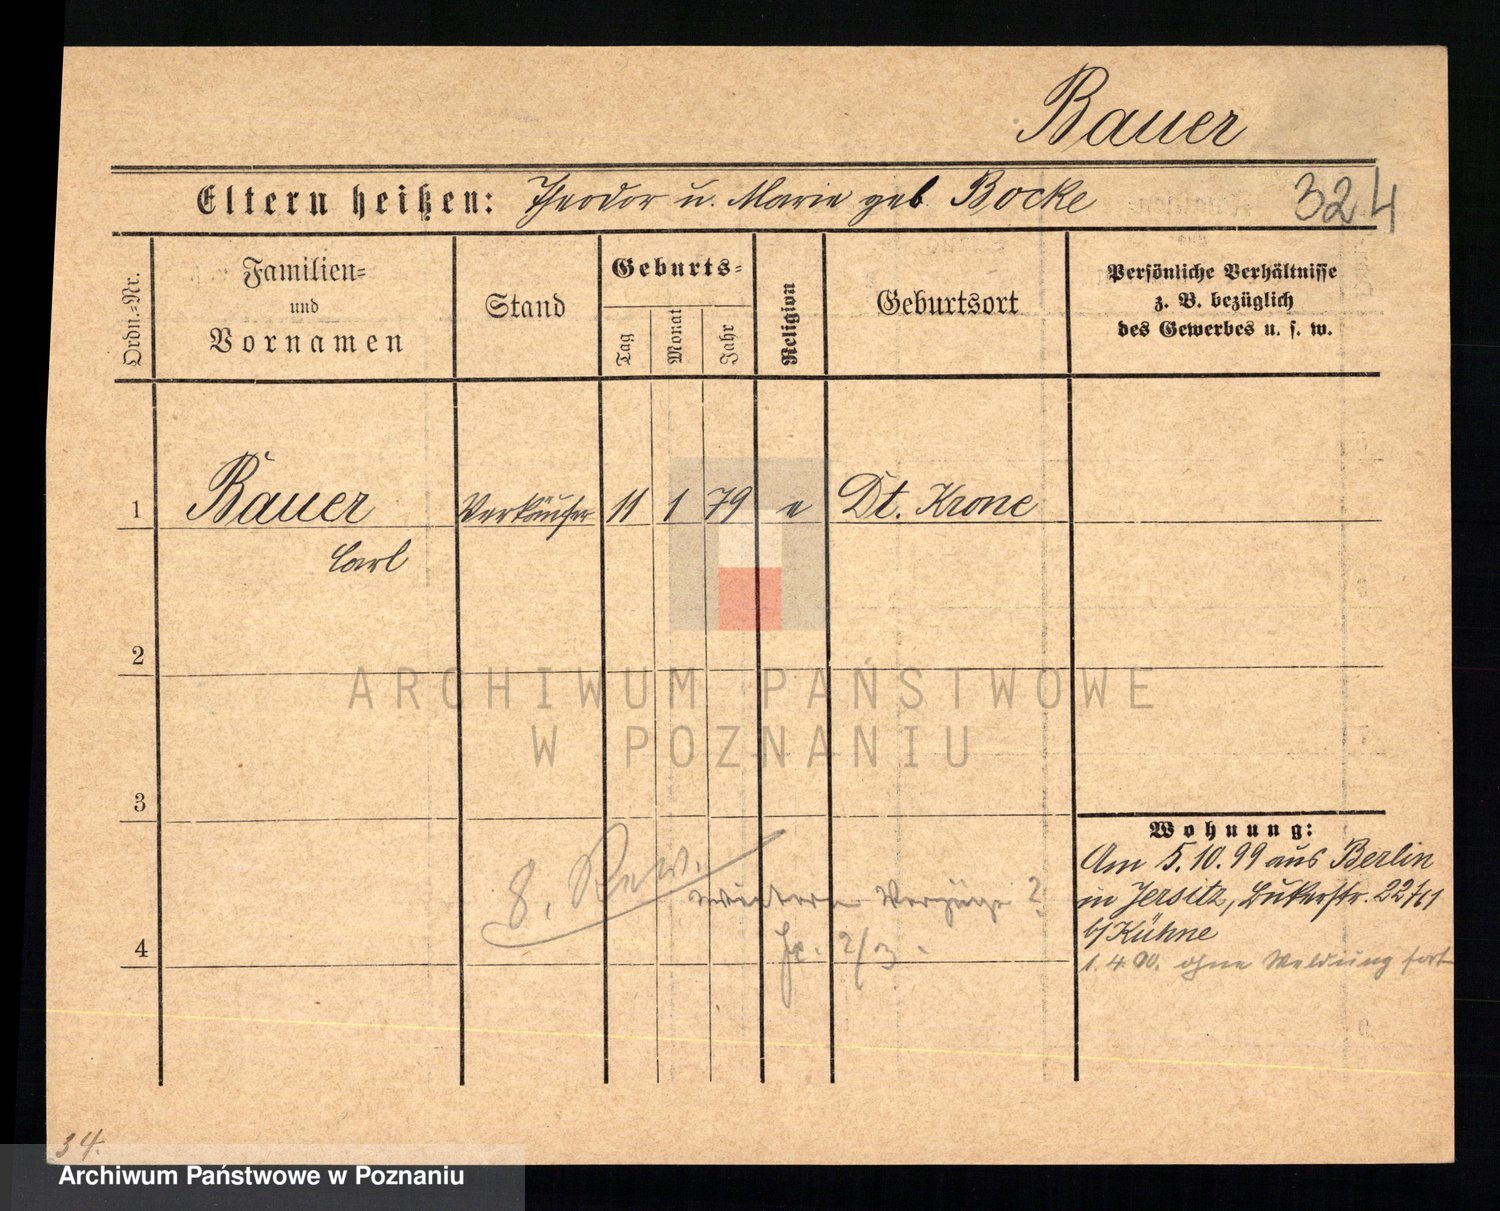 Bauer
Eltern heißen: Theodor u. Marie geb. Bocke 324
Ordn.=Nr.
Familien=
und
Vornamen
Stand
Geburts=
Tag
Monat
Jahr
Religion
Geburtsort
Persönliche Verhältnisse
z. B. bezüglich
des Gewerbes u. s. w.
1 Bauer Verkäufer 11 1 79 e Dt. Krone
Carl
2
ARCHIWUM PAŃSTWOWE
W POZNANIU
3
Wohnung:
Am 5.10.99 aus Berlin
in Jersitz, 22/11
b/Kühne
1.4.00. ohne Meldung fort
8. Rew.
2/3.
4
34.
Archiwum Państwowe w Poznaniu